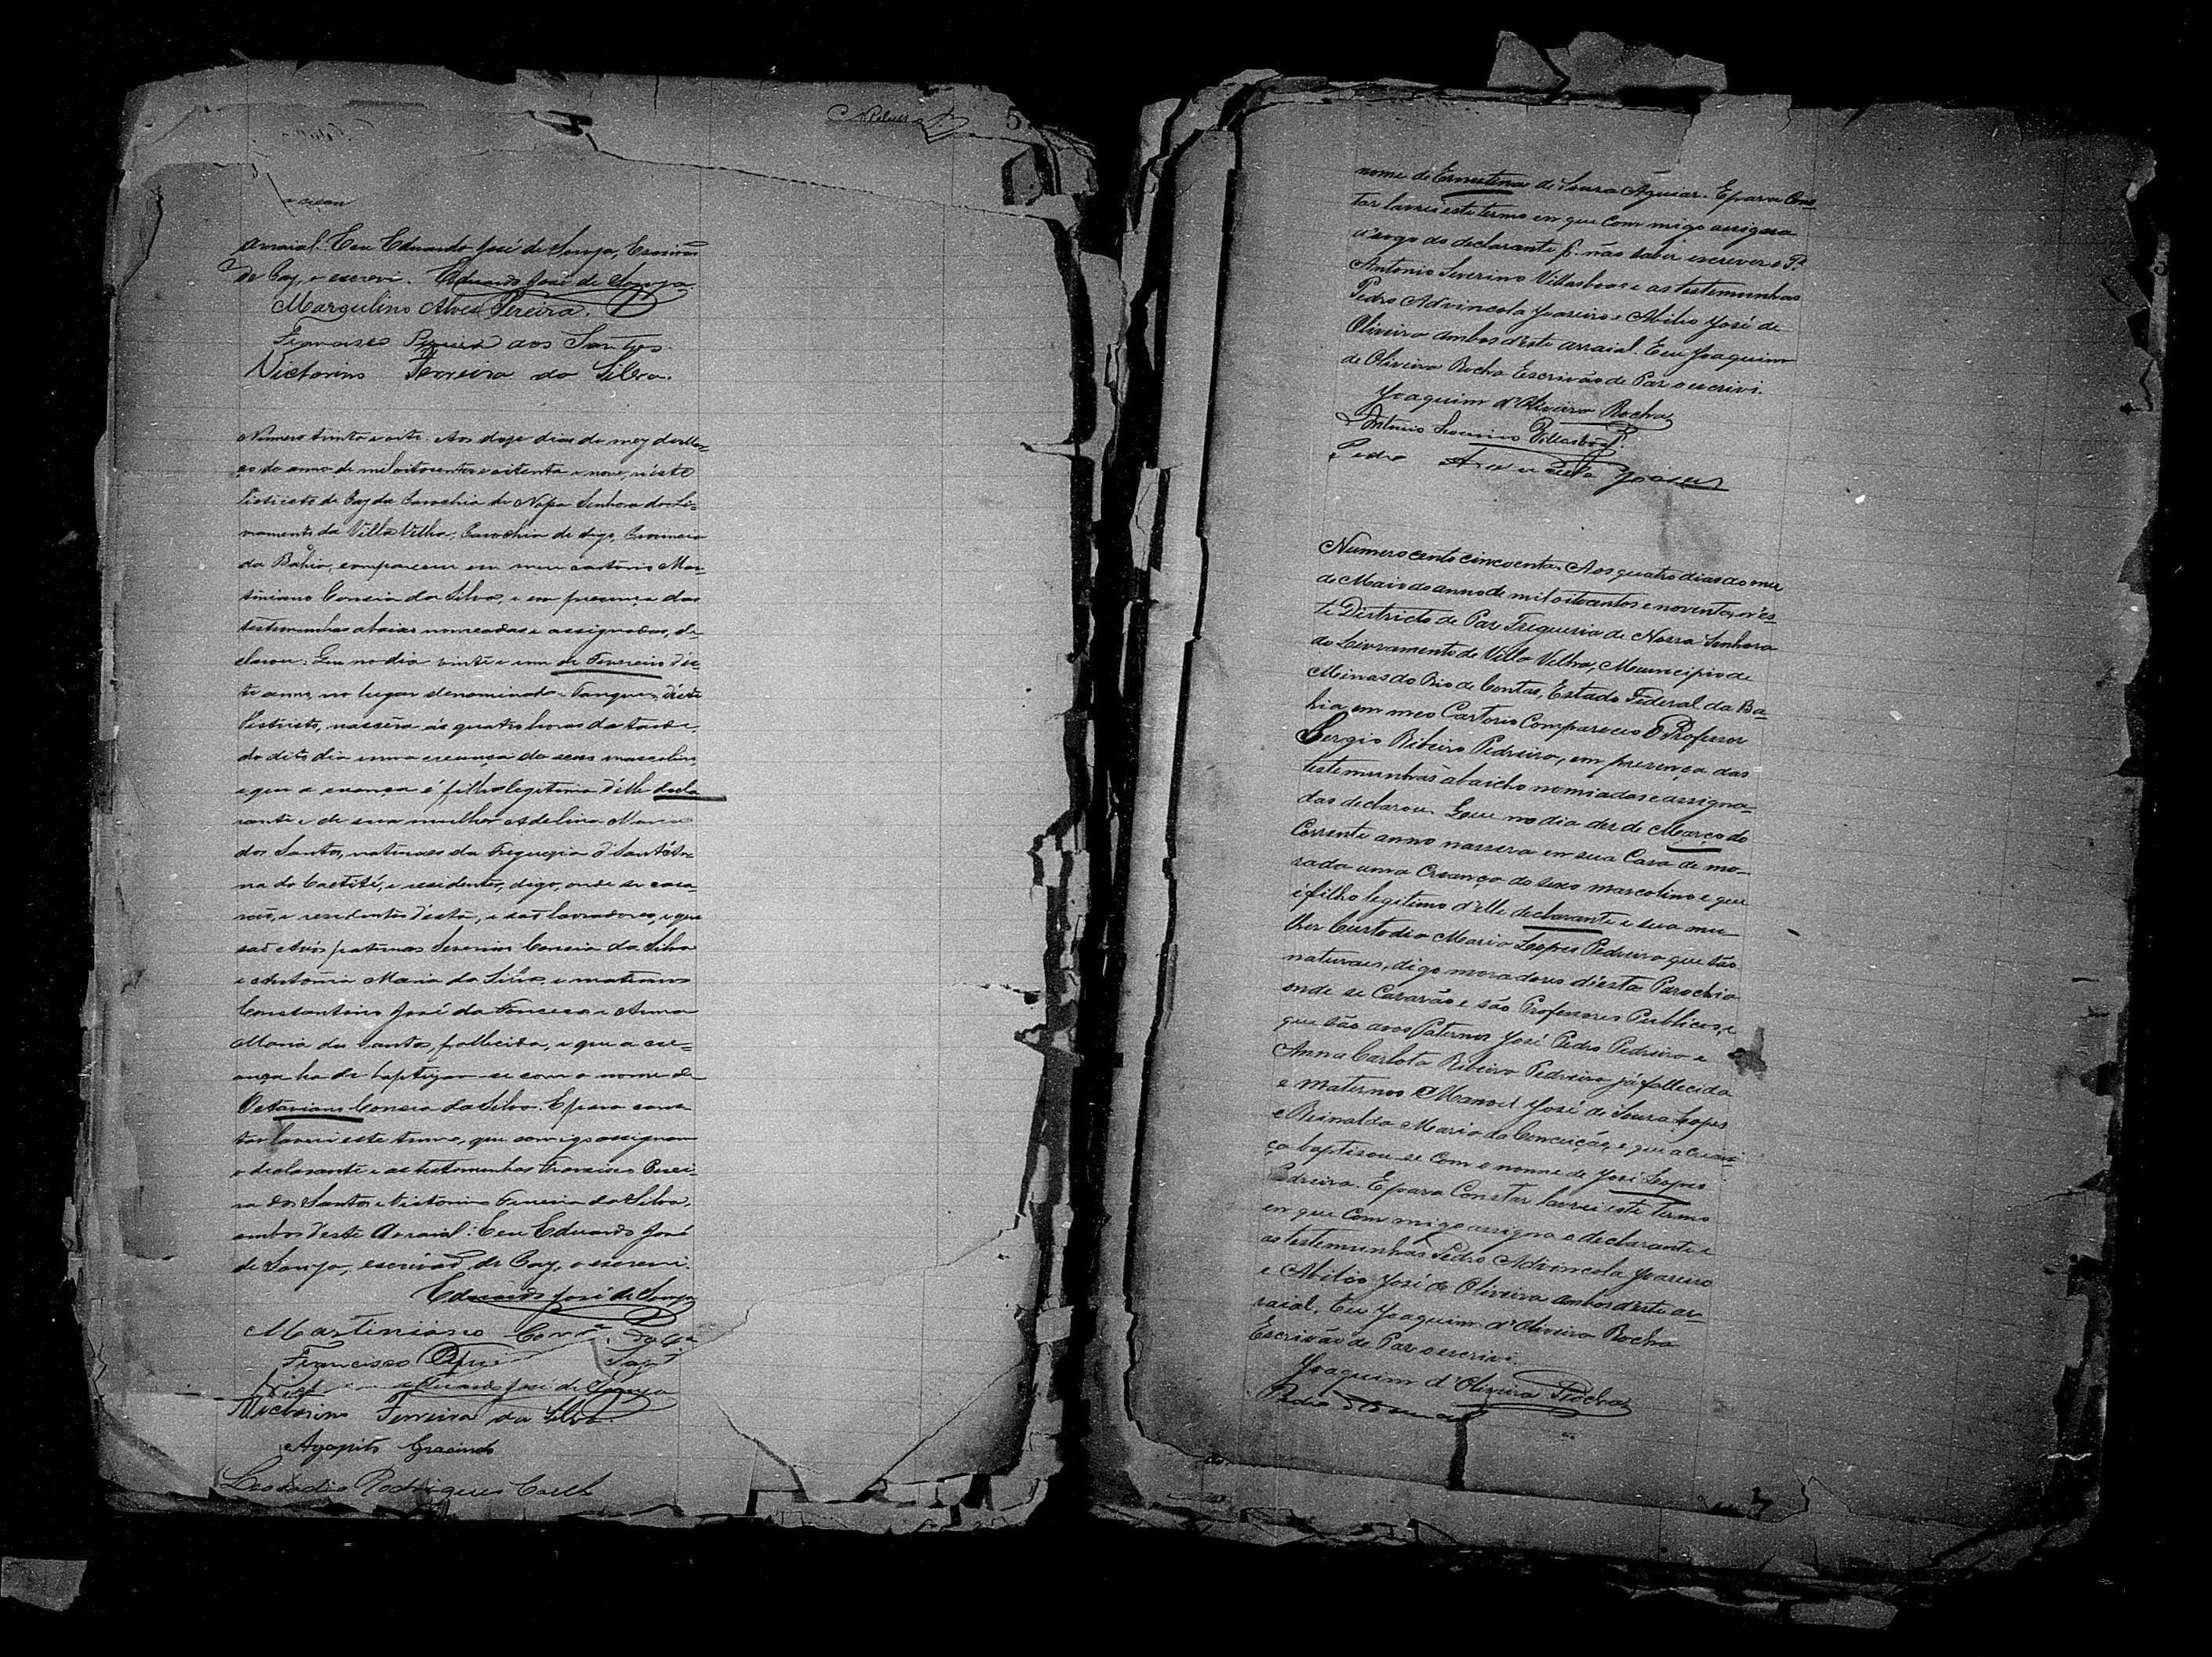 5
arraial. Eu Eduardo José de Souza, Escrivão
de Paz, o escrevi. Eduardo José de Souza
Marculino Alves Pereira.
Francisco Pereira dos Santos
Victorino Ferreira da Silva.
Numero trinta e oito. Aos doze dias do mez de Mar-
ço do anno de mil oitocentos e oitenta e nove, n'este
Districto de Paz da Parochia de Nossa Senhora do Li-
vramento da Villa Velha, Parochia de digo, Provincia
da Bahia, compareceu em meu cartorio Mar-
tiniano Correia da Silva, e em presença das
testemunhas abaixo nomeadas e assignadas, de-
clarou: Que no dia vinte e um de Fevereiro d'es-
te anno, no lugar denominado Tanque, d'este
Districto, nascêra ás quatro horas da tarde
do dito dia uma creança do sexo masculino
e que a creança é filho legitimo d'elle decla
rante e de sua mulher Adelina Maria
dos Santos, naturaes da Freguezia de Sant'An-
na do Caetité, e residentes, digo, onde se casa-
rão, e residentes n'esta, e são lavradores, e que
são Avós paternos Severino Correia da Silva
e Antonia Maria da Silva, e maternos
Constantino José da Fonseca e Anna
Maria dos Santos, fallecida, e que a cre-
ança ha de baptizar-se com o nome de
Octaviano Correia da Silva. E para cons-
tar lavrei este termo, que comigo assignam
o declarante e as testemunhas Francisco Perei-
ra dos Santos e Victorino Ferreira da Silva,
ambos d'este Arraial. Eu Eduardo José
de Souza, escrivão de Paz, o escrevi.
Eduardo José de Souza
Martiniano Corrª da Sª
Francisco
Eduardo José de Souza
Victorino Ferreira da Silva.
Agapito
Leocadio Rodrigues Coelho
nome de Ernestina de Souza Aguiar. E para Cons-
tar lavrei este termo em que com migo assigna
a rogo do declarante p. não saber escrever o
Antonio Severino Villasboas e as testemunhas
Pedro Advincola Joazeiro e Abilio José de
Oliveira ambos d'este arraial. Eu Joaquim
de Oliveira Rocha Escrivão de Paz o escrivi.
Joaquim d'Oliveira Rocha
Antonio Severino Villasboas
Pedro
Numero cento cincoenta. Aos quatro dias do mez
de Maio do anno de mil oitocentos e noventa, n'es-
te Districto de Paz Freguesia de Nossa Senhora
do Livramento de Villa Velha, Municipio de
Minas do Rio de Contas, Estado Federal da Ba-
hia em meo Cartorio Compareceo o Professor
Sergio Ribeiro Pedreira, em presença das
testemunhas abaicho nomiadas e assigna-
das declarou. Que no dia des de Março do
Corrente anno nassera em sua Casa de mo-
rada uma Creança do sexo mascolino e que
é filho legitimo d'elle declarante e sua mu-
lher Custodia Maria Lopes Pedreira que são
naturaes, digo moradores d'esta Parochia
onde se Casarão e são Professores Publicos, e
que são avos Paternos José Pedro Pedreira e
Anna Carlota Ribeiro Pedreira já fallecida
e maternos Manoel José de Souza Lopes
e Reinalda Maria da Conceição, e que a crean-
ça baptisou-se com o nome de José Lopes
Pedreira. E para Constar lavrei este termo
em que Com migo assigna o declarante e
as testemunhas Pedro Advincola Joazeiro
e Abilio José de Oliveira ambos d'este ar-
raial. Eu Joaquim d'Oliveira Rocha
Escrivão de Paz o escrivi.
Joaquim d'Oliveira Rocha
Pedro